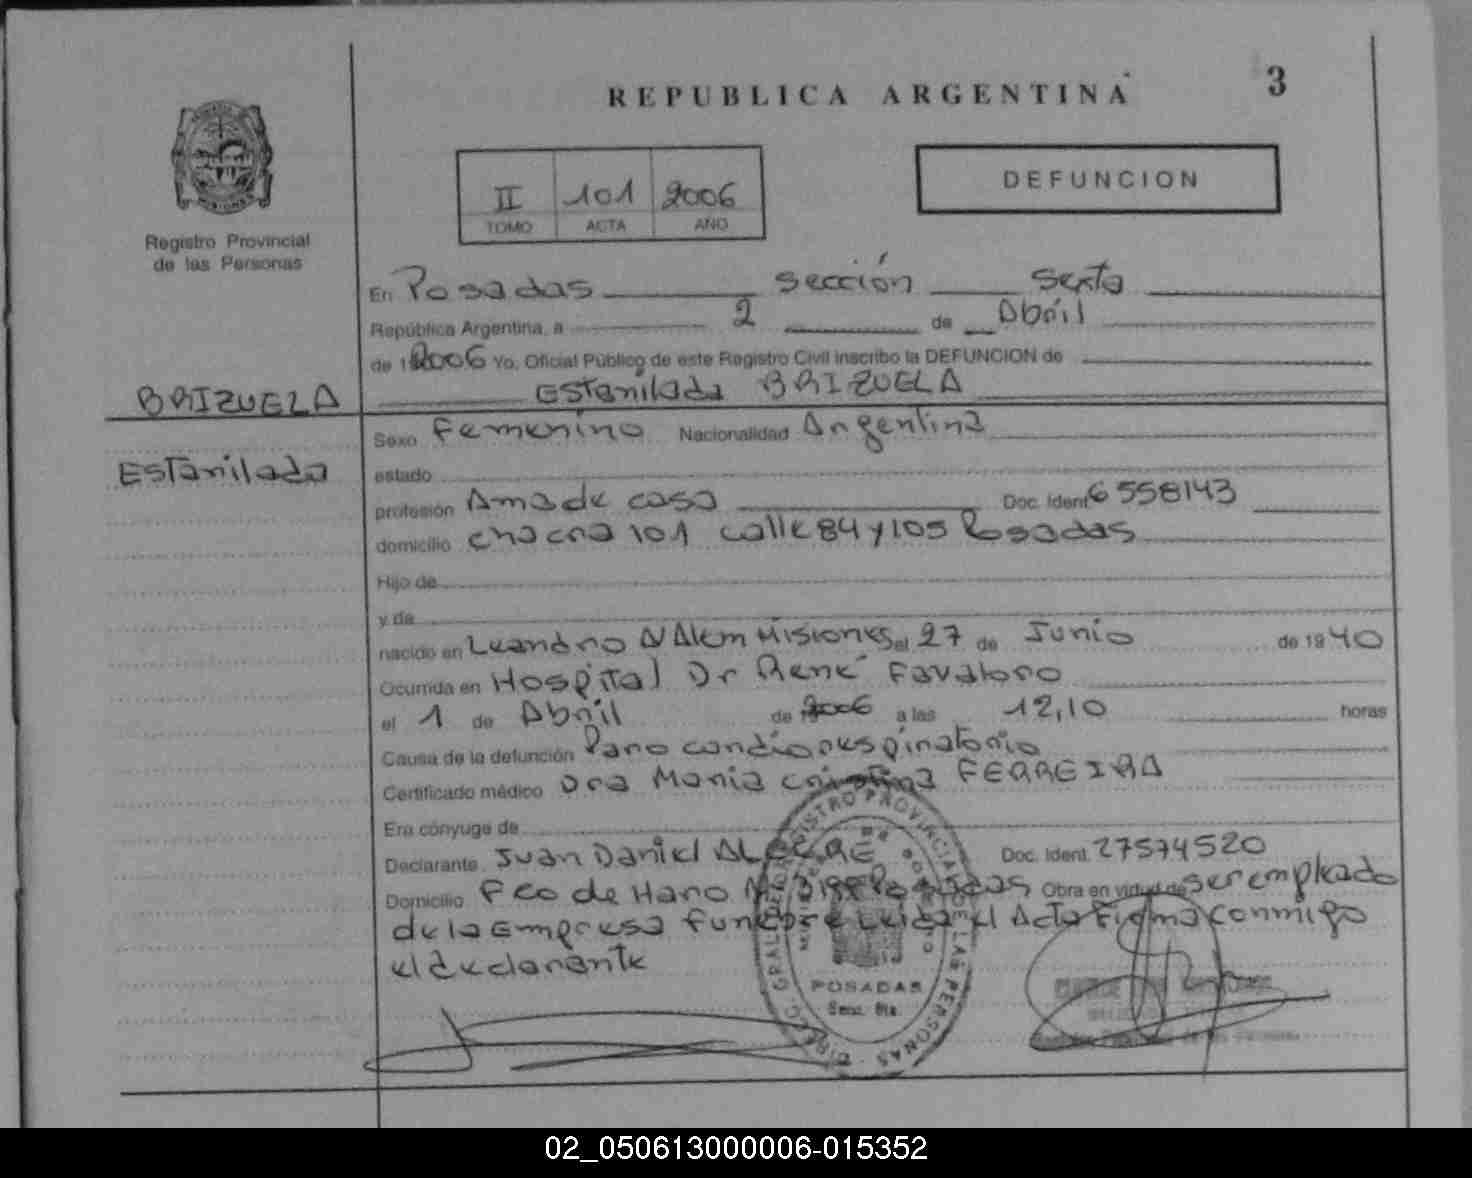 REPUBLICA ARGENTINA
3
II 101 2006
TOMO ACTA AÑO
DEFUNCION
Registro Provincial
de las Personas
En Posadas sección sexta
República Argentina, a 2 de Abril
de 19 2006 Yo, Oficial Público de este Registro Civil inscribo la DEFUNCION de
Estanilada BRIZUELA
BRIZUELA
Estanilada
Sexo Femenino Nacionalidad Argentina
estado
profesión Ama de casa Doc. Ident. 6558143
domicilio chacra 101 calle 84 y 105 Posadas
Hijo de
y de
nacido en Leandro N Alem Misiones el 27 de Junio de 19 40
Ocurrida en Hospital Dr René Favaloro
el 1 de Abril de 2006 a las 12,10 horas
Causa de la defunción Paro cardiorespiratorio
Certificado médico Dra Maria Cristina FERREIRA
Era cónyuge de
Declarante Juan Daniel ALEGRE Doc. Ident. 27574520
Domicilio Fco de Haro Nº 3188 Posadas Obra en virtud de ser empleado
de la Empresa funebre Leida el Acta Firma conmigo
el declarante
REGISTRO PROVINCIAL DE LAS PERSONAS
POSADAS
Secc. 6ta.
02_050613000006-015352